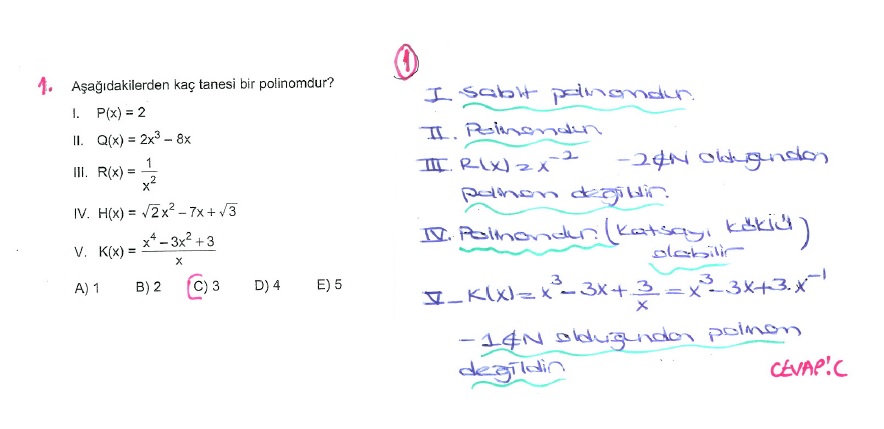 1. Aşağıdakilerden kaç tanesi bir polinomdur?
I. P(x) = 2
II. Q(x) = 2x³ – 8x
III. R(x) = 1/x²
IV. H(x) = √2x² – 7x + √3
V. K(x) = (x⁴ – 3x² + 3)/x
A) 1 B) 2 C) 3 D) 4 E) 5
1
I sabit polinomdur.
II. Polinomdur
III. R(x) = x⁻² -2∉N olduğundan
polinom değildir.
IV. Polinomdur. (Katsayı köklü
olabilir)
V_ K(x) = x³ - 3x + 3/x = x³ - 3x + 3.x⁻¹
-1∉N olduğundan polinom
değildir
CEVAP: C